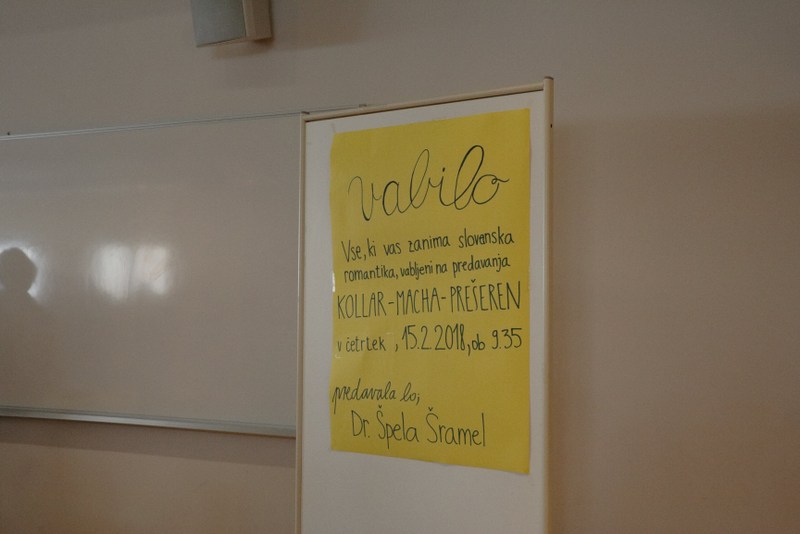 vabilo
Vse, ki vas zanima slovenska
romantika, vabljeni na predavanja
KOLLAR-MACHA-PREŠEREN
v četrtek, 15.2.2018, ob 9.35
predavala bo;
Dr. Špela Šramel